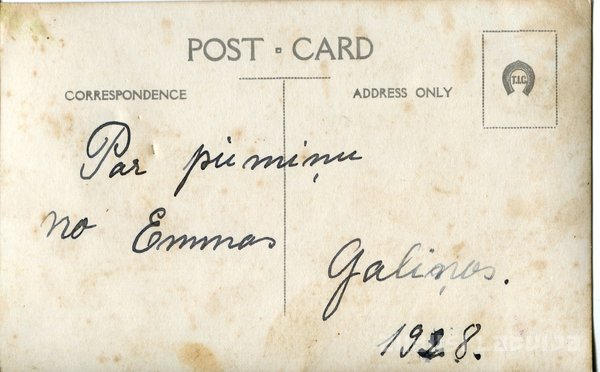 POST · CARD
CORRESPONDENCE
ADDRESS ONLY
T.I.C.
Par piemiņu
no Emmas
Galiņas.
1928.